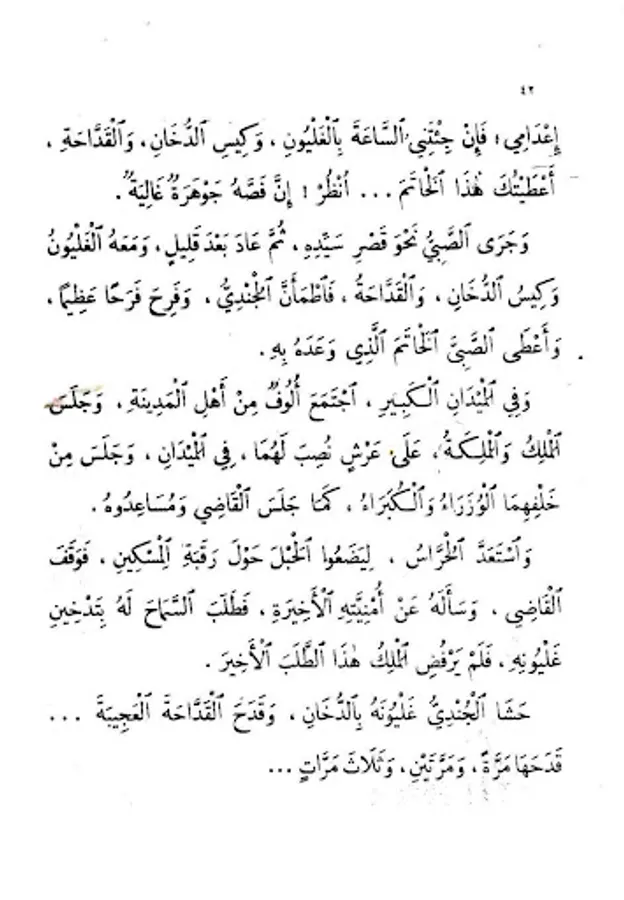 ٤٢
إِعْدَامِي ؛ فَإِنْ جِئْتَنِي ٱلسَّاعَةَ بِٱلْغَلْيُونِ ، وَكِيسِ ٱلدُّخَانِ ، وَٱلْقَدَّاحَةِ ،
أَعْطَيْتُكَ هٰذَا ٱلْخَاتَمَ ... اُنْظُرْ ! إِنَّ فَصَّهُ جَوْهَرَةٌ غَالِيَةٌ .
وَجَرَى ٱلصَّبِيُّ نَحْوَ قَصْرِ سَيِّدِهِ ، ثُمَّ عَادَ بَعْدَ قَلِيلٍ ، وَمَعَهُ ٱلْغَلْيُونُ
وَكِيسُ ٱلدُّخَانِ ، وَٱلْقَدَّاحَةُ ، فَٱطْمَأَنَّ ٱلْجُنْدِيُّ ، وَفَرِحَ فَرَحًا عَظِيمًا ،
وَأَعْطَى ٱلصَّبِيَّ ٱلْخَاتَمَ ٱلَّذِي وَعَدَهُ بِهِ .
وَفِي ٱلْمَيْدَانِ ٱلْكَبِيرِ ، ٱجْتَمَعَ أُلُوفٌ مِنْ أَهْلِ ٱلْمَدِينَةِ ، وَجَلَسَ
ٱلْمَلِكُ وَٱلْمَلِكَةُ ، عَلَى عَرْشٍ نُصِبَ لَهُمَا ، فِي ٱلْمَيْدَانِ ، وَجَلَسَ مِنْ
خَلْفِهِمَا ٱلْوُزَرَاءُ وَٱلْكُبَرَاءُ ، كَمَا جَلَسَ ٱلْقَاضِي وَمُسَاعِدُوهُ .
وَٱسْتَعَدَّ ٱلْحُرَّاسُ ، لِيَضَعُوا ٱلْحَبْلَ حَوْلَ رَقَبَةِ ٱلْمِسْكِينِ ، فَوَقَفَ
ٱلْقَاضِي ، وَسَأَلَهُ عَنْ أُمْنِيَّتِهِ ٱلْأَخِيرَةِ ، فَطَلَبَ ٱلسَّمَاحَ لَهُ بِتَدْخِينِ
غَلْيُونِهِ ، فَلَمْ يَرْفُضِ ٱلْمَلِكُ هٰذَا ٱلطَّلَبَ ٱلْأَخِيرَ .
حَشَا ٱلْجُنْدِيُّ غَلْيُونَهُ بِٱلدُّخَانِ ، وَقَدَحَ ٱلْقَدَّاحَةَ ٱلْعَجِيبَةَ ...
قَدَحَهَا مَرَّةً ، وَمَرَّتَيْنِ ، وَثَلَاثَ مَرَّاتٍ ...